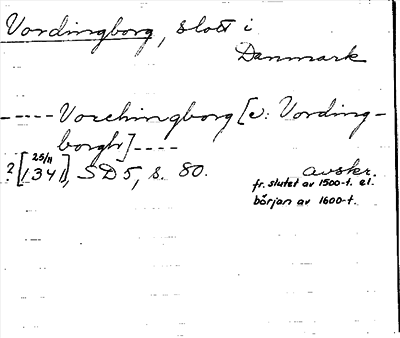 Vordingborg, slott i
Danmark
----- Vorchingborg [ɔ: Vording-
borgh] ----
? [25/11 1341], SD 5, s. 80.
avskr.
fr. slutet av 1500-t. el.
början av 1600-t.